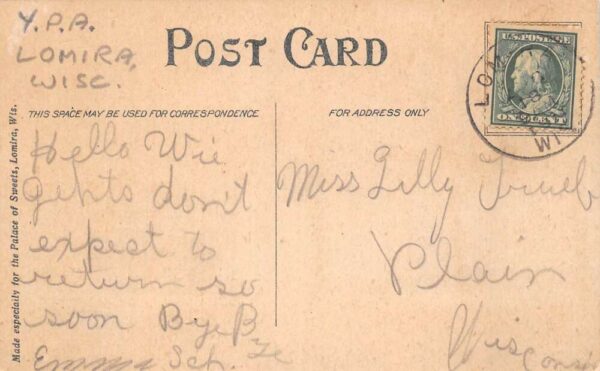 Y.P.A.
LOMIRA,
WISC.
POST CARD
THIS SPACE MAY BE USED FOR CORRESPONDENCE
FOR ADDRESS ONLY
Made especially for the Palace of Sweets, Lomira, Wis.
Hello Wie
gehts don't
expect to
return so
soon Bye Bye
Emma Sch.
Miss Lilly
Plain
Wisconsin
U.S. POSTAGE
ONE CENT
LOM
WI